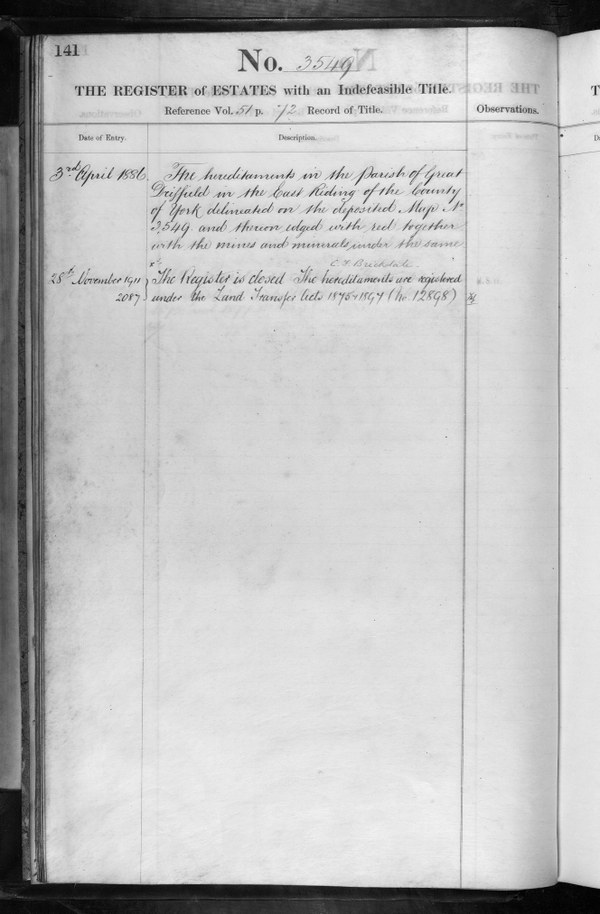 141
No. 3549
THE REGISTER of ESTATES with an Indefeasible Title.
Reference Vol. 51 p. 72 Record of Title.
Observations.
Date of Entry.
Description.
3rd April 1886
The hereditaments in the Parish of Great
Driffield in the East Riding of the County
of York delineated on the deposited Map No
3,549 and thereon edged with red together
with the mines and minerals under the same
C F Brickdale
28th November 1911
2087
The Register is closed The hereditaments are registered
under the Land Transfer Acts 1875 & 1897 (No 12898)